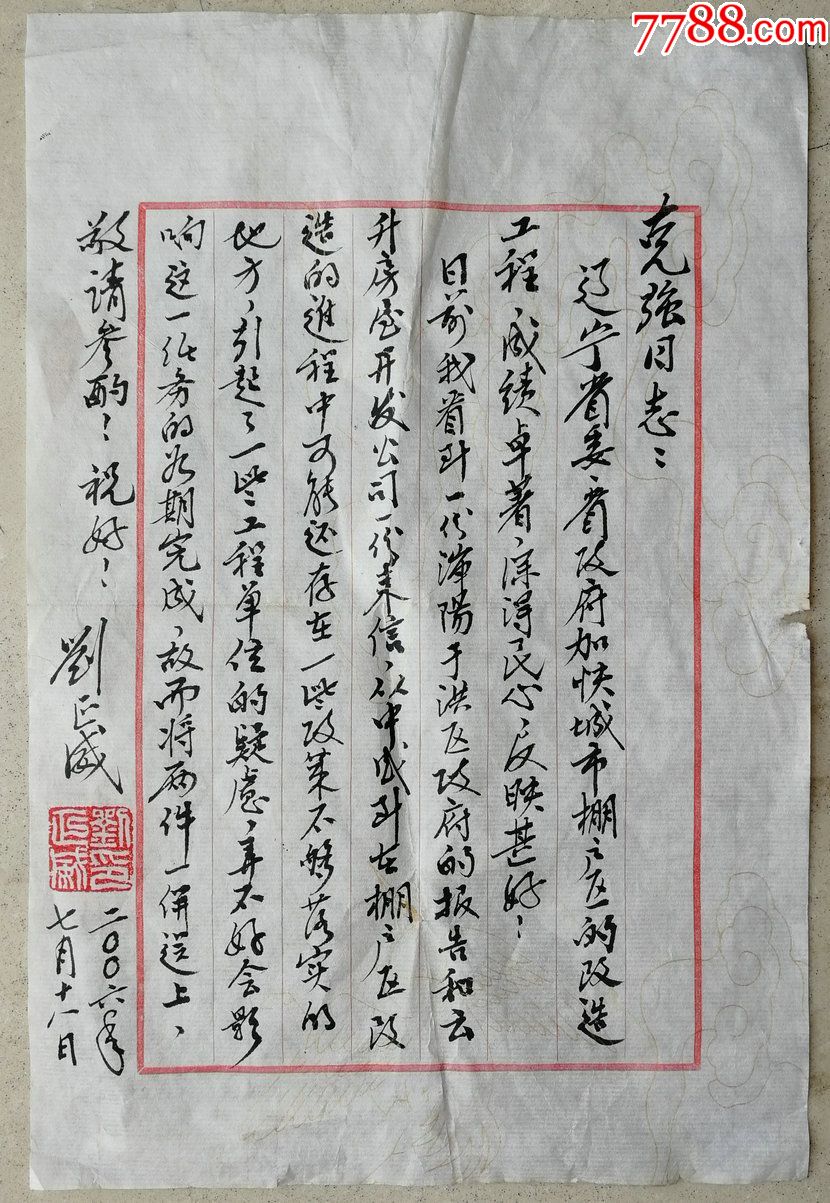 7788.com
克強同志：
辽宁省委、省政府加快城市棚户区的改造
工程，成績卓著，深得民心，反映甚好！
日前我看到一份瀋陽于洪区政府的报告和云
升房屋开发公司一份来信，从中感到在棚户区改
造的進程中可能还存在一些政策不够落实的
地方，引起了一些工程单位的疑慮，弄不好会影
响这一任务的如期完成，故而将两件一併送上，
敬请参酌！祝好！
劉正威
劉正威印
二〇〇六年
七月十八日